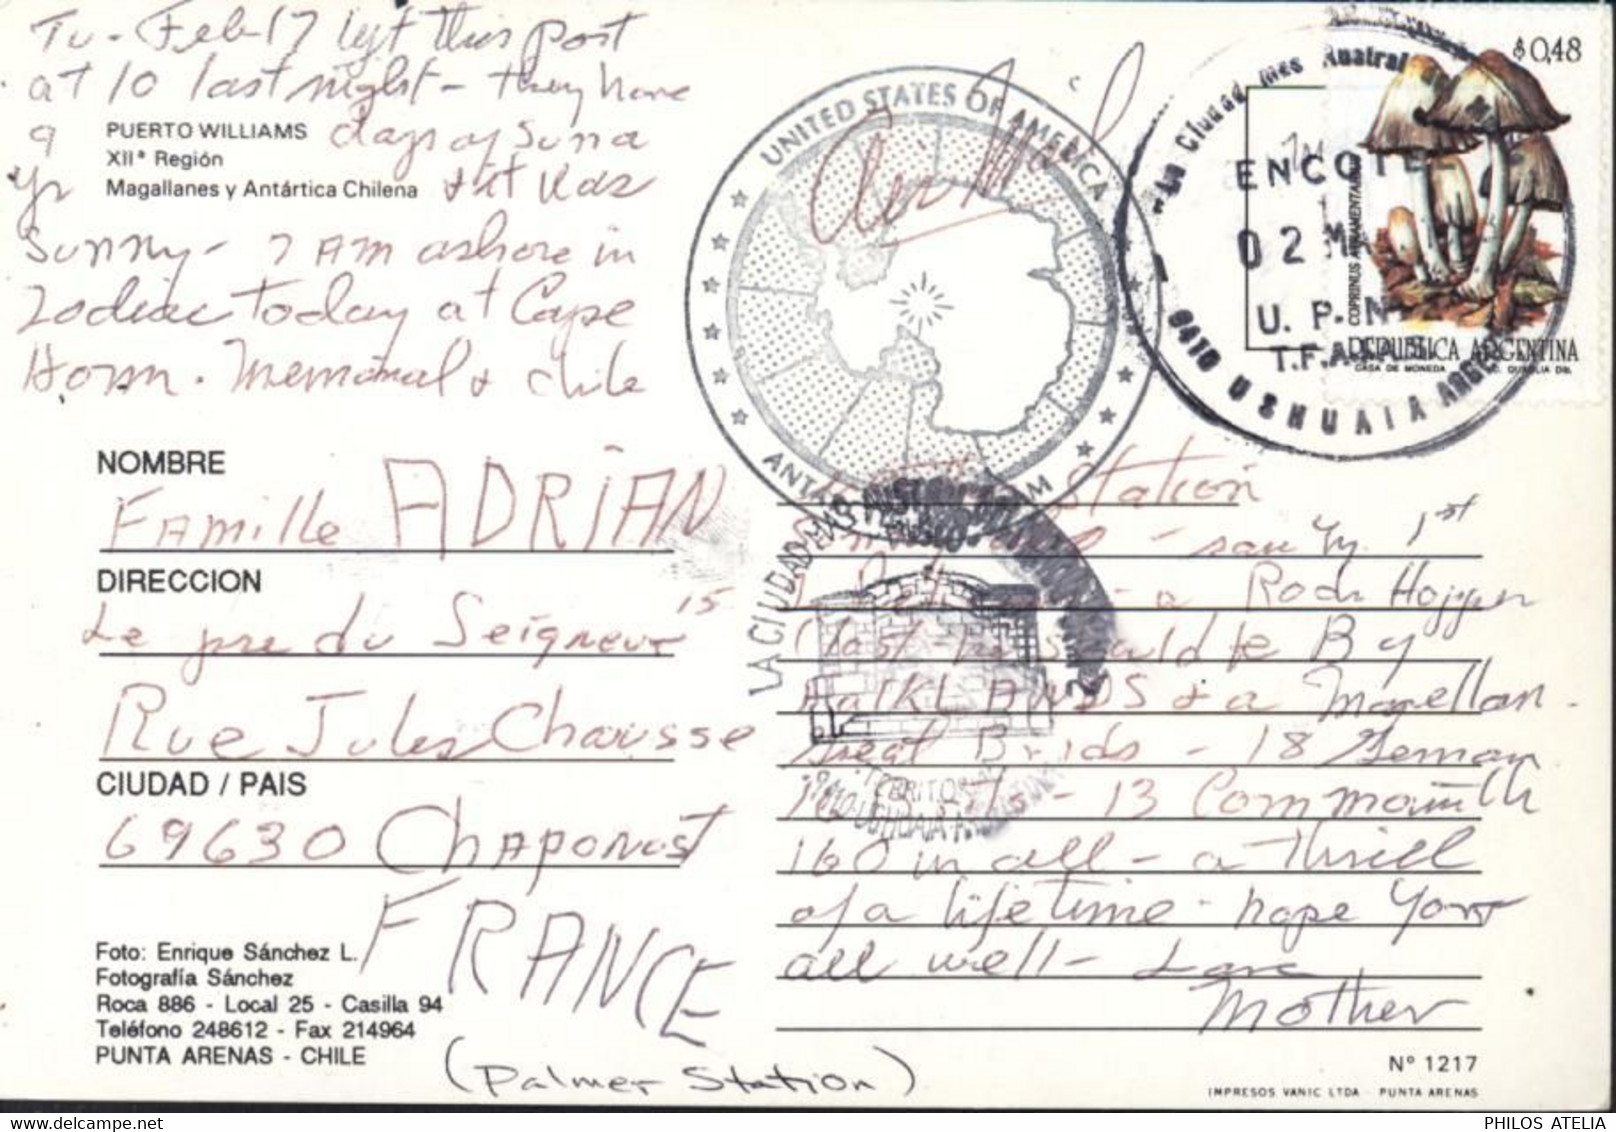 Tu - Feb 17 left this post
at 10 last night - they have
9 days of sun a
PUERTO WILLIAMS
XIIª Región
Magallanes y Antártica Chilena
yr & it was
Sunny - 7 AM ashore in
Zodiac today at Cape
Horn. Memorial & Chile
Air Mail
UNITED STATES OF AMERICA
"La Ciudad mas Austral
ENCOTEL
02 MA
U. P. N
T.F.A.
9410 USHUAIA ARGE
$0,48
COPRINUS ATRAMENTARIUS
REPUBLICA ARGENTINA
CASA DE MONEDA
NOMBRE
Famille ADRIAN
DIRECCION
Le pre du Seigneur 15
Rue Jules Chausse
CIUDAD / PAIS
69630 Chaponost
FRANCE
(Palmer Station)
Foto: Enrique Sánchez L.
Fotografía Sánchez
Roca 886 - Local 25 - Casilla 94
Teléfono 248612 - Fax 214964
PUNTA ARENAS - CHILE
LA CIUDAD MAS AUSTRAL
Station
saw my 1st
- a Rock Hopper
(last to be By
FalKLANDS & a Magellan.
great Brids - 18 German
- 13 Commonwlth
160 in all - a thrill
of a life time - hope your
all well - Love
Mother
Nº 1217
IMPRESOS VANIC LTDA - PUNTA ARENAS
PHILOS ATELIA